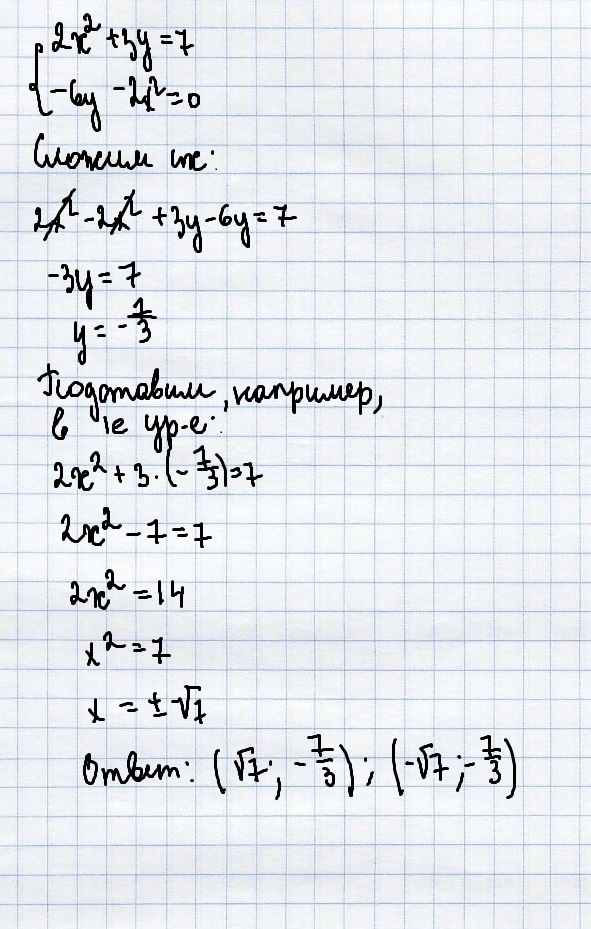 2x² + 3y = 7
-6y - 2x² = 0
Сложим их:
2x² - 2x² + 3y - 6y = 7
-3y = 7
y = -7/3
Подставим, например,
в 1е ур-е:
2x² + 3·(-7/3) = 7
2x² - 7 = 7
2x² = 14
x² = 7
x = ±√7
Ответ: (√7; -7/3); (-√7; -7/3)